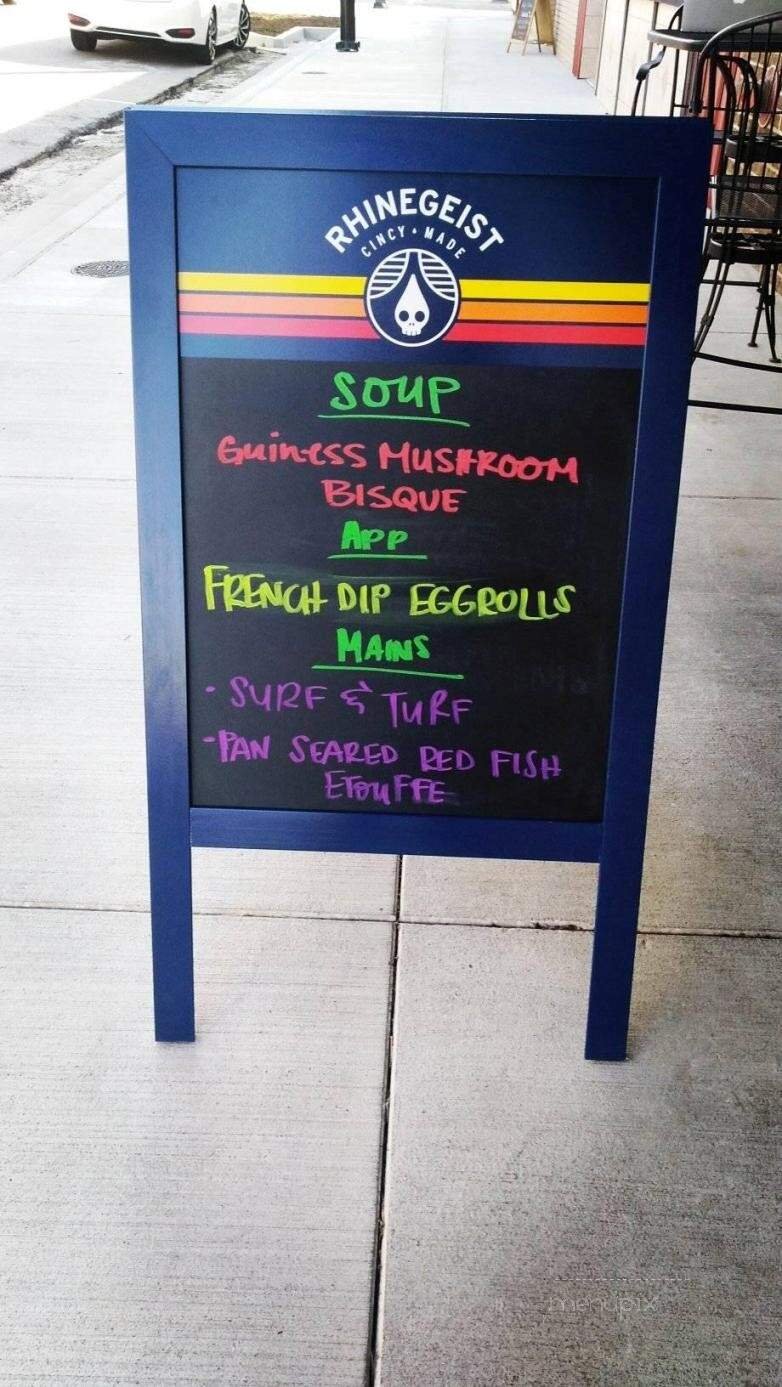 RHINEGEIST
CINCY MADE
SOUP
Guiness MUSHROOM
BISQUE
APP
FRENCH DIP EGGROLLS
MAINS
· SURF & TURF
- PAN SEARED RED FISH
ETOUFFE
menupix